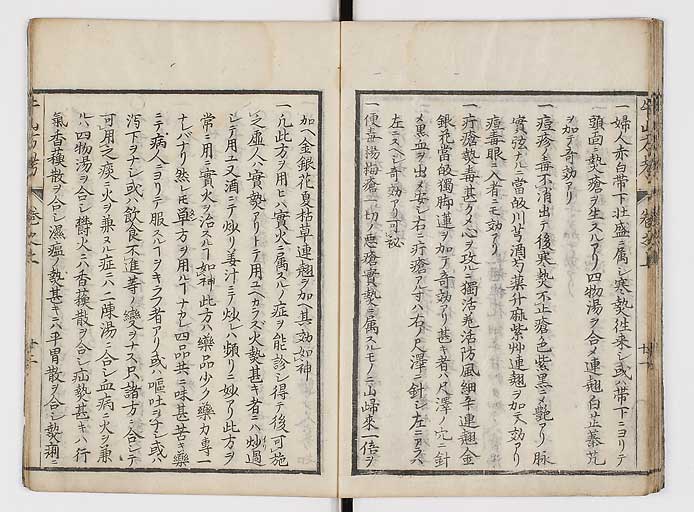 一婦人赤白帯下壮盛ニ属シ寒熱往来シ或ハ帯下ニヨリテ
頭面ニ熱瘡ヲ生スルアリ四物湯ヲ合メ連翹白芷蔓荊
ヲ加テ奇効アリ
一痘疹ノ毒不消出テ後寒熱不止瘡色紫黒ノ艶アリ脈
實弦ナルニ當皈川芎酒芍藥升麻紫艸連翹ヲ加天効アリ
痘毒眼ニ入者ニモ効アリ
一疔瘡熱毒甚ク〆心ヲ攻ルニ獨活羌活防風細辛連翹金
銀花當皈獨脚蓮ヲ加テ奇効アリ甚キ者ハ尺澤ノ穴ニ針
〆黒血ヲ出〆妄シ右ニ疔瘡アル寸ハ右ノ尺澤ニ針シ左ニアラハ
左ニスヘシ奇効アリ可秘
一便毒揚梅瘡一切ノ悪瘡實熱ニ属スルモノニ山帰来一倍ヲ
加へ金銀花夏枯草連翹ヲ加其効如神
一凡此方ヲ用ヒハ實火ニ属スルノ症ヲ能診シ得テ後可施
之虚人ハ實熱アリトテ用ユヘカラズ火熱甚キ者ニハ炒過
シテ用ユ又酒ニテ炒リ姜汁ニテ炒レハ頻リニ妙アリ此方ヲ
常ニ用ニ實火ヲ治スルヿ如神此方ハ藥品少ク藥力専一
ナレバナリ然レモ單方ヲ用ルヿナカレ四品共ニ味甚苦キ藥
ニテ病人ニヨリテ服スルヿヲキラフ者アリ或ハ嘔吐ヲナシ或ハ
瀉下ヲナシ或ハ飲食不進等ノ変ヲナス尺諸方ニ合シテ
可用之痰ニ火ヲ兼ルノ症ニハ二陳湯ニ合シ血病ニ火ヲ兼
ハ四物湯ニ合シ欝火ニハ香蘓散ヲ合シ疝熱甚キハ行
氣香蘓散ヲ合シ濕瘟ノ熱甚キニハ平胃散ヲ合シ熱痢ニ